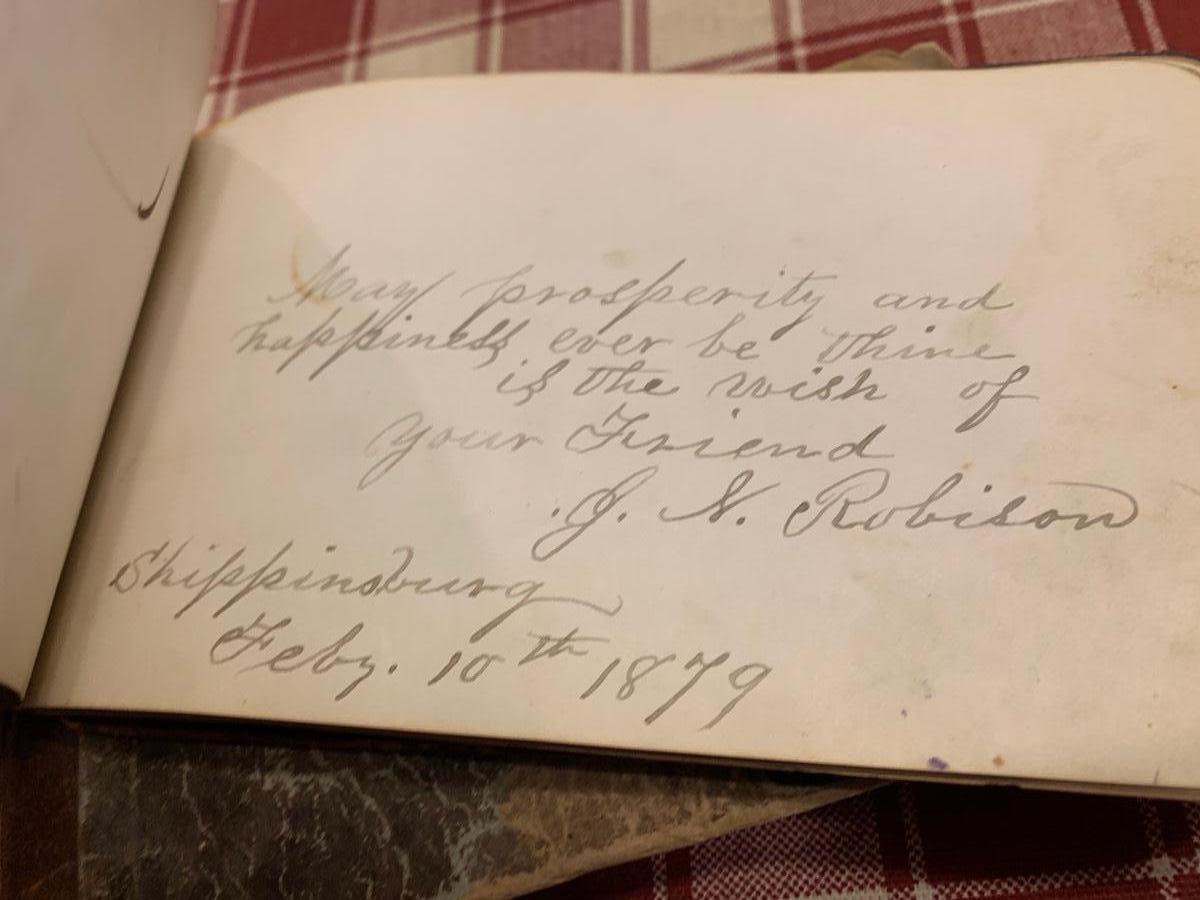 May prosperity and
happiness ever be thine
is the wish of
your Friend
J. N. Robison
Shippinsburg
Feby. 10th 1879